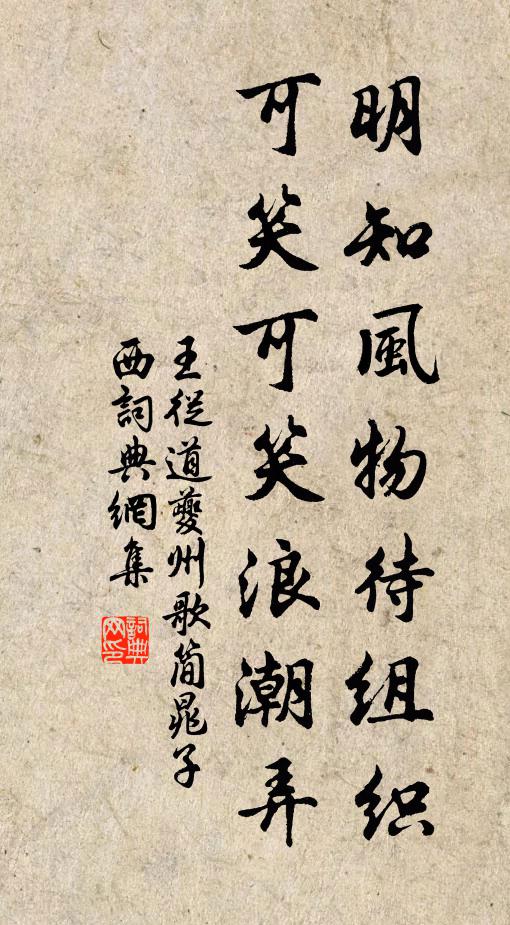 明知風物待組织
可笑可笑浪潮弄
王從道夔州歌簡晁子
西詞典網集
詞典
网印